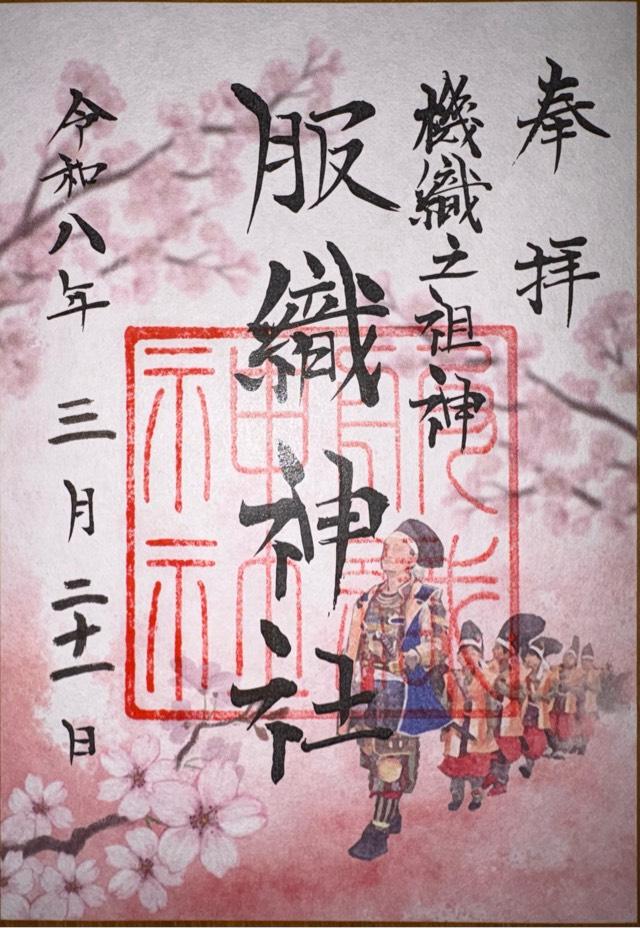 奉拝
機織之祖神
服織神社
令和八年 三月 二十一日